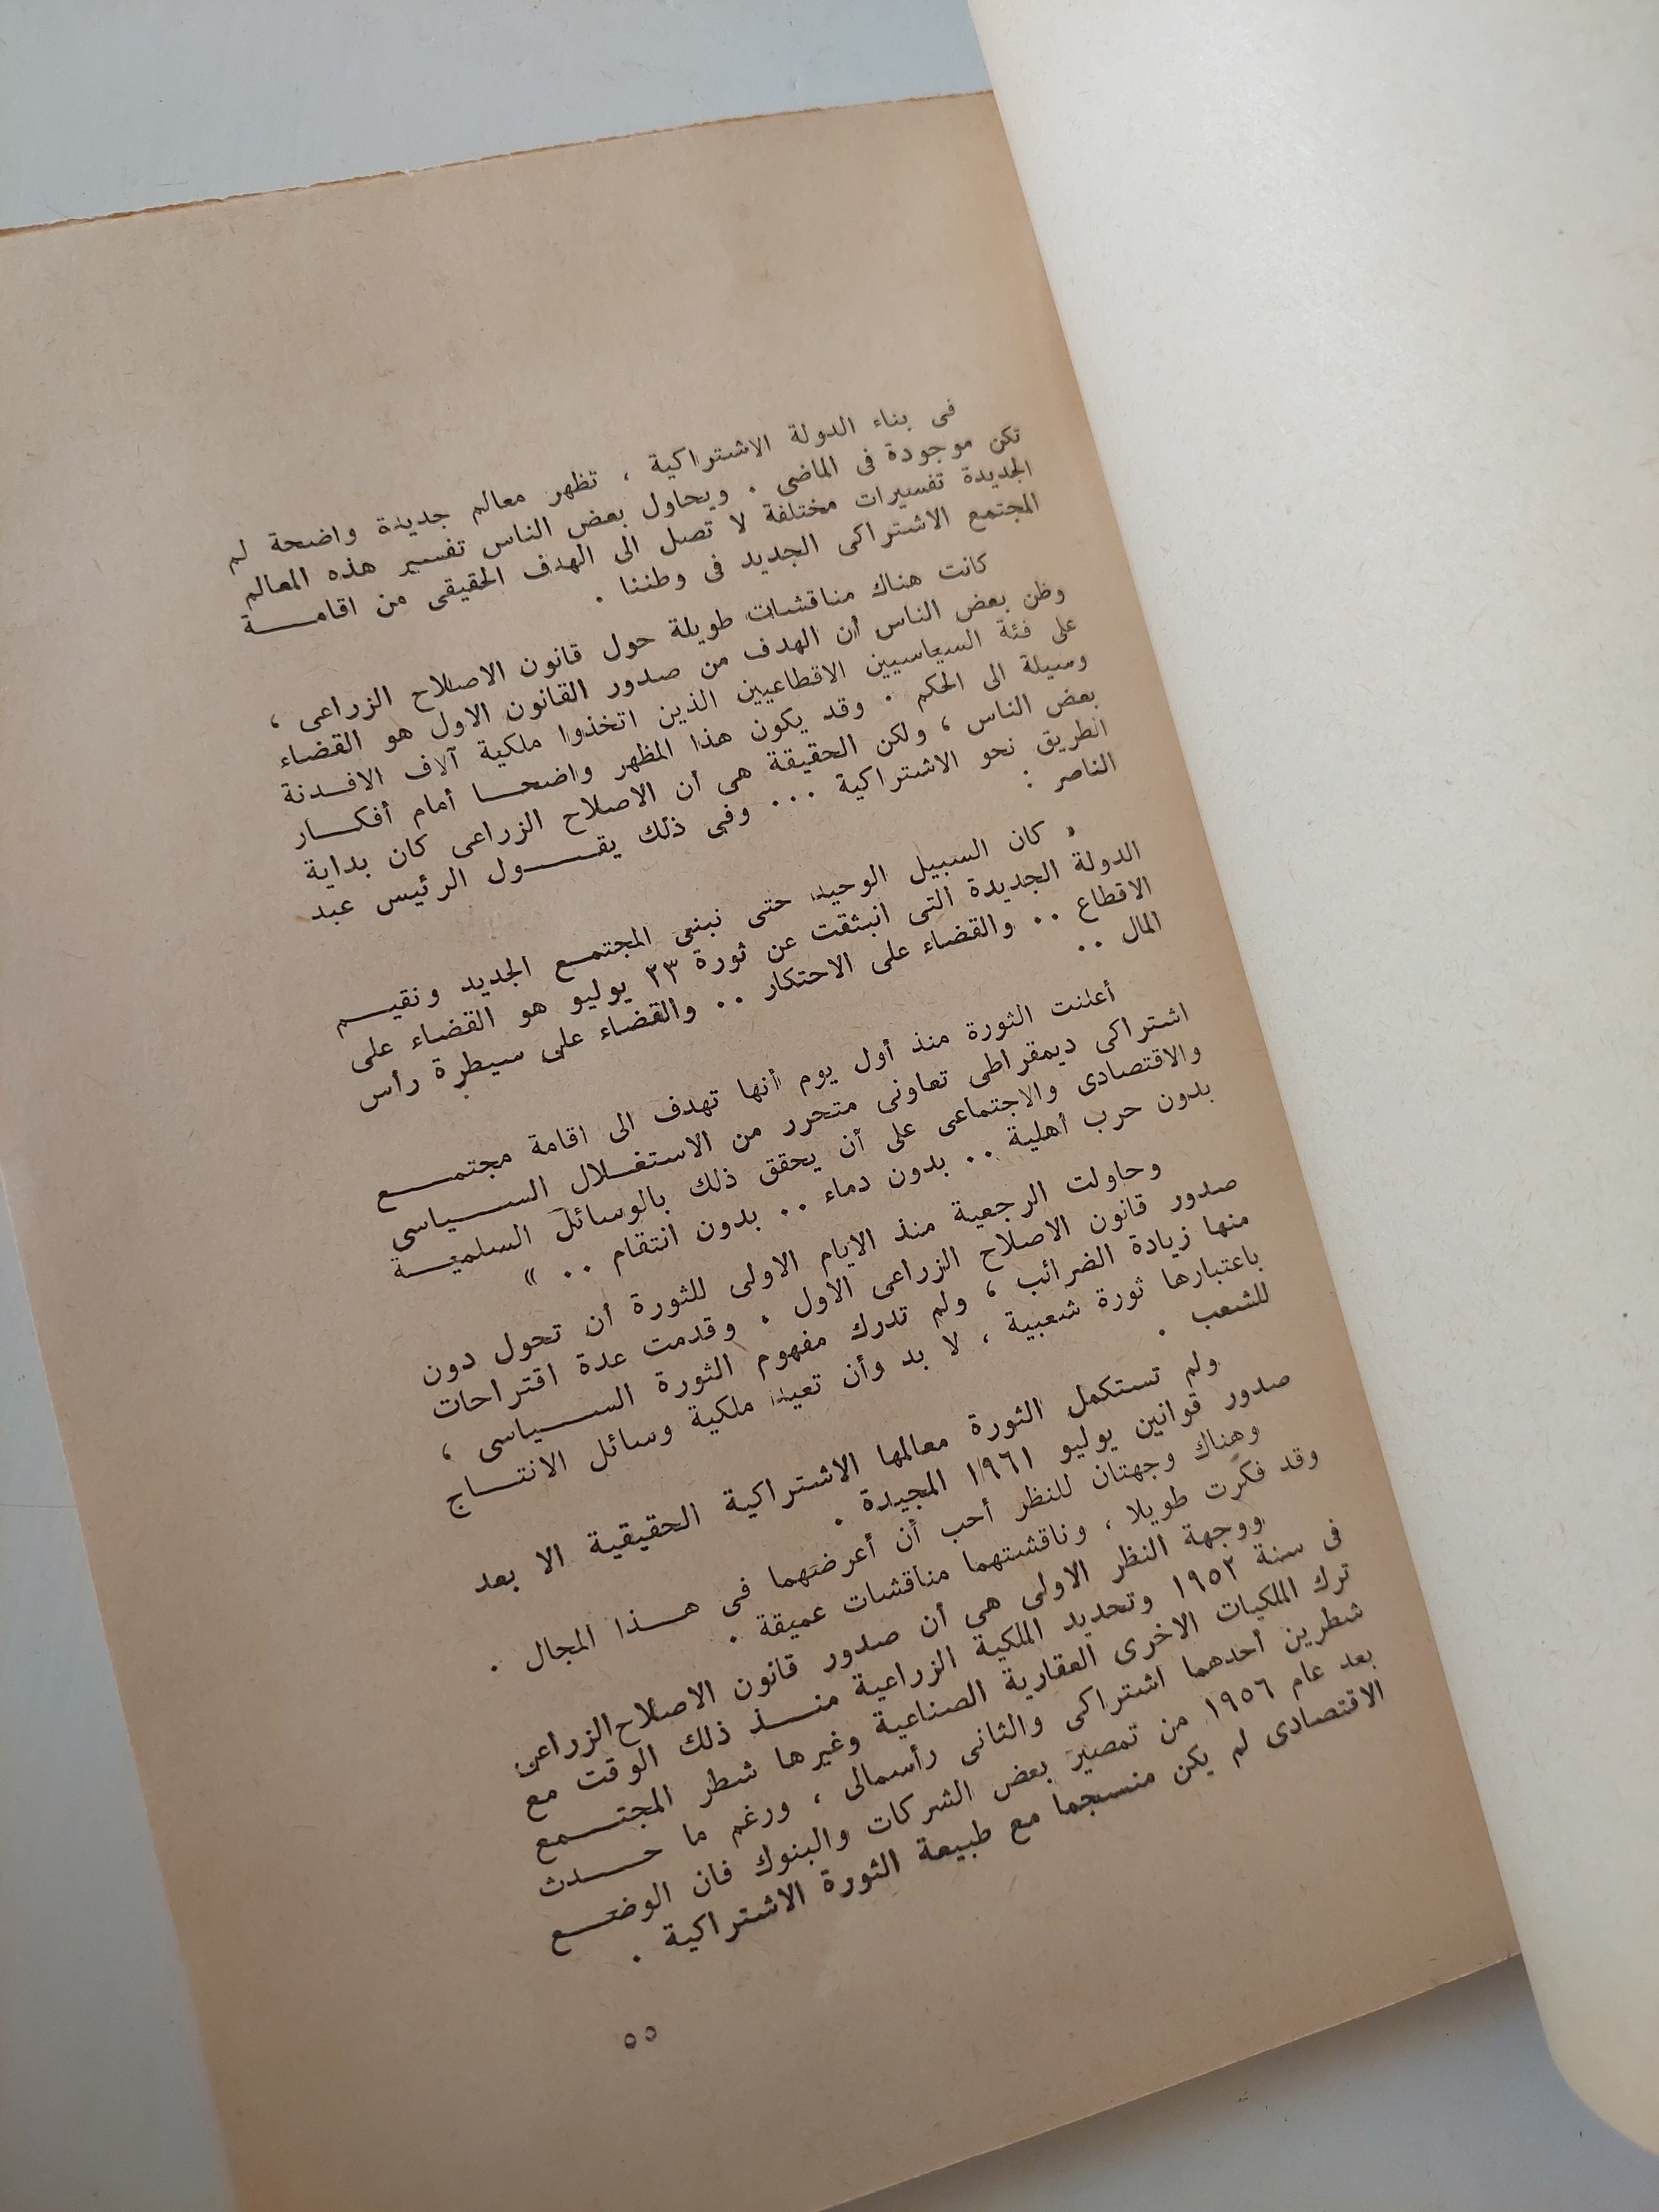 فى بناء الدولة الاشتراكية ، تظهر معالم جديدة واضحة لم
تكن موجودة فى الماضى . ويحاول بعض الناس تفسير هذه المعالم
الجديدة تفسيرات مختلفة لا تصل الى الهدف الحقيقى من اقامة
المجتمع الاشتراكى الجديد فى وطننا .
كانت هناك مناقشات طويلة حول قانون الاصلاح الزراعى ،
وظن بعض الناس أن الهدف من صدور القانون الاول هو القضاء
على فئة السياسيين الاقطاعيين الذين اتخذوا ملكية آلاف الافدنة
وسيلة الى الحكم . وقد يكون هذا المظهر واضحا أمام أفكار
بعض الناس ، ولكن الحقيقة هى أن الاصلاح الزراعى كان بداية
الطريق نحو الاشتراكية ... وفى ذلك يقول الرئيس عبد
الناصر :
« كان السبيل الوحيد حتى نبنى المجتمع الجديد ونقيم
الدولة الجديدة التى انبثقت عن ثورة ٢٣ يوليو هو القضاء على
الاقطاع .. والقضاء على الاحتكار .. والقضاء على سيطرة رأس
المال ..
أعلنت الثورة منذ أول يوم أنها تهدف الى اقامة مجتمع
اشتراكى ديمقراطى تعاونى متحرر من الاستغلال السياسى
والاقتصادى والاجتماعى على أن يحقق ذلك بالوسائل السلمية
بدون حرب أهلية .. بدون دماء .. بدون انتقام .. »
وحاولت الرجعية منذ الايام الاولى للثورة أن تحول دون
صدور قانون الاصلاح الزراعى الاول . وقدمت عدة اقتراحات
منها زيادة الضرائب ، ولم تدرك مفهوم الثورة السياسى ،
باعتبارها ثورة شعبية ، لا بد وأن تعيد ملكية وسائل الانتاج
للشعب .
ولم تستكمل الثورة معالمها الاشتراكية الحقيقية الا بعد
صدور قوانين يوليو ١٩٦١ المجيدة .
وهناك وجهتان للنظر أحب أن أعرضهما فى هذا المجال .
وقد فكرت طويلا ، وناقشتهما مناقشات عميقة .
ووجهة النظر الاولى هى أن صدور قانون الاصلاح الزراعى
فى سنة ١٩٥٢ وتحديد الملكية الزراعية منذ ذلك الوقت مع
ترك الملكيات الاخرى العقارية الصناعية وغيرها شطر المجتمع
شطرين أحدهما اشتراكى والثانى رأسمالى ، ورغم ما حدث
بعد عام ١٩٥٦ من تمصير بعض الشركات والبنوك فان الوضع
الاقتصادى لم يكن منسجما مع طبيعة الثورة الاشتراكية .
٥٥